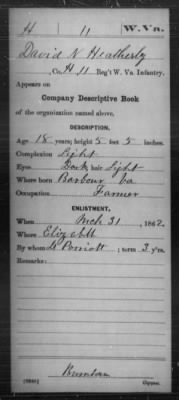 H 11 W. Va.
David N Heatherly
, Co. H 11 Reg't W. Va. Infantry.
Appears on
Company Descriptive Book
of the organization named above.
DESCRIPTION.
Age 18 years; height 5 feet 5 inches.
Complexion Light
Eyes Dark; hair Light
Where born Barbour Va
Occupation Farmer
ENLISTMENT.
When Mch 31, 1862.
Where Eliz
By whom Lt ; term 3 y'rs.
Remarks:
Copyist.